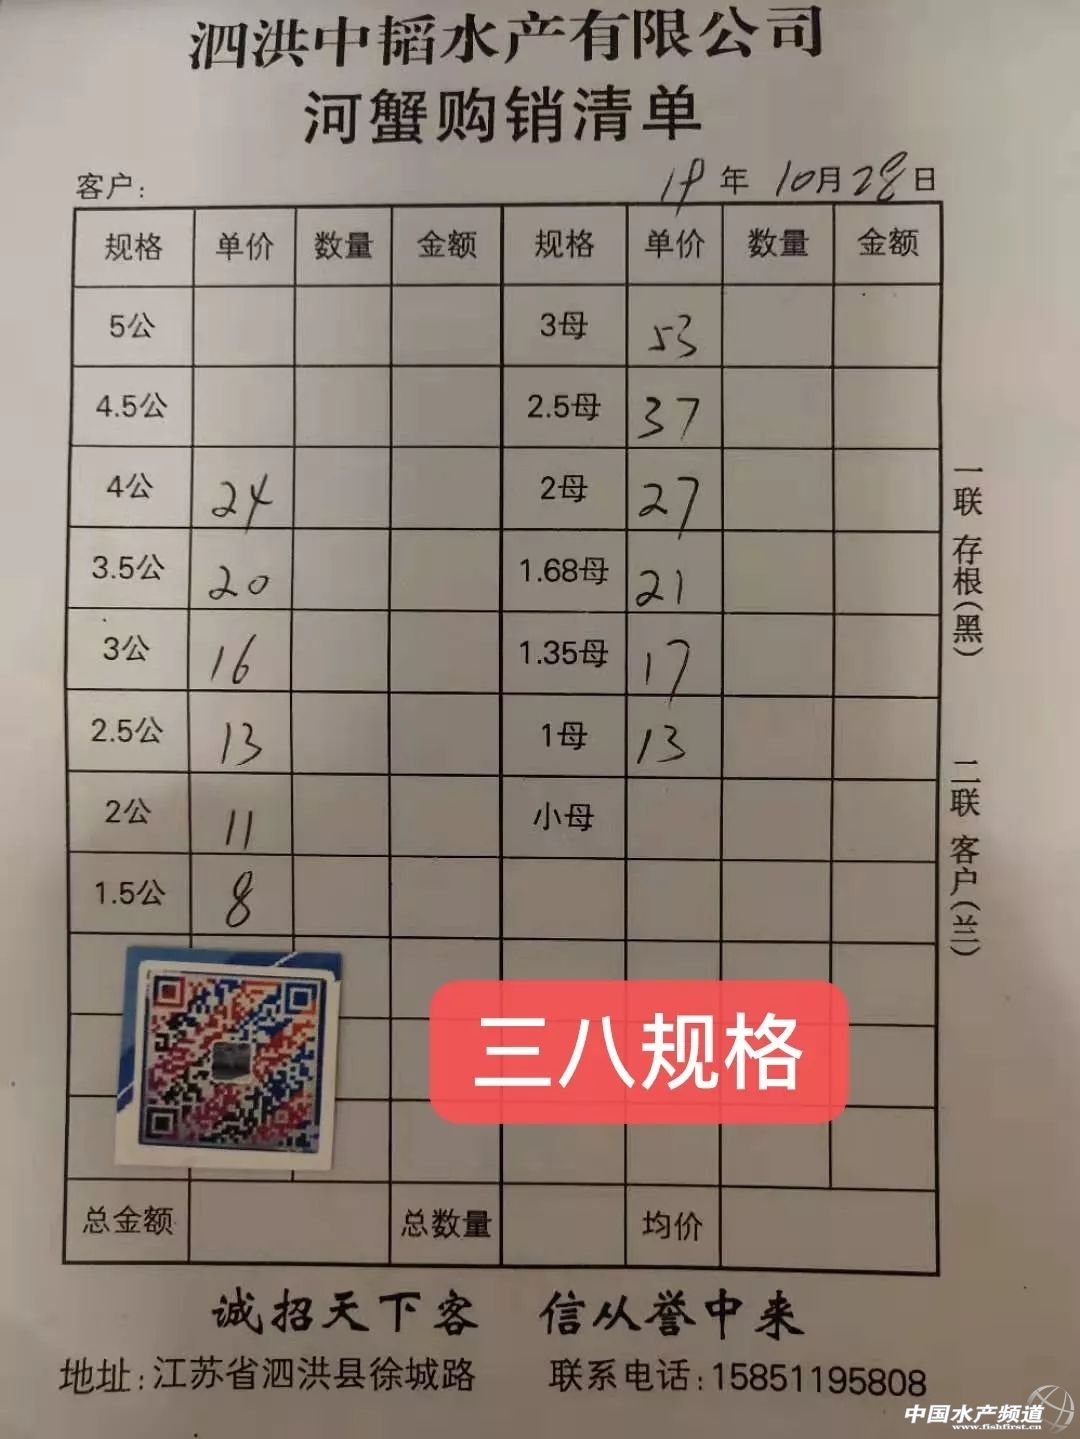 泗洪中韬水产有限公司
河蟹购销清单
客户: 19年 10月28日
规格 单价 数量 金额 规格 单价 数量 金额
5公 3母 53
4.5公 2.5母 37
4公 24 2母 27
3.5公 20 1.68母 21
3公 16 1.35母 17
2.5公 13 1母 13
2公 11 小母
1.5公 8
三八规格
总金额 总数量 均价
一联 存根(黑)
二联 客户(兰)
诚招天下客 信从誉中来
地址:江苏省泗洪县徐城路 联系电话:15851195808
中国水产频道
www.fishfirst.cn